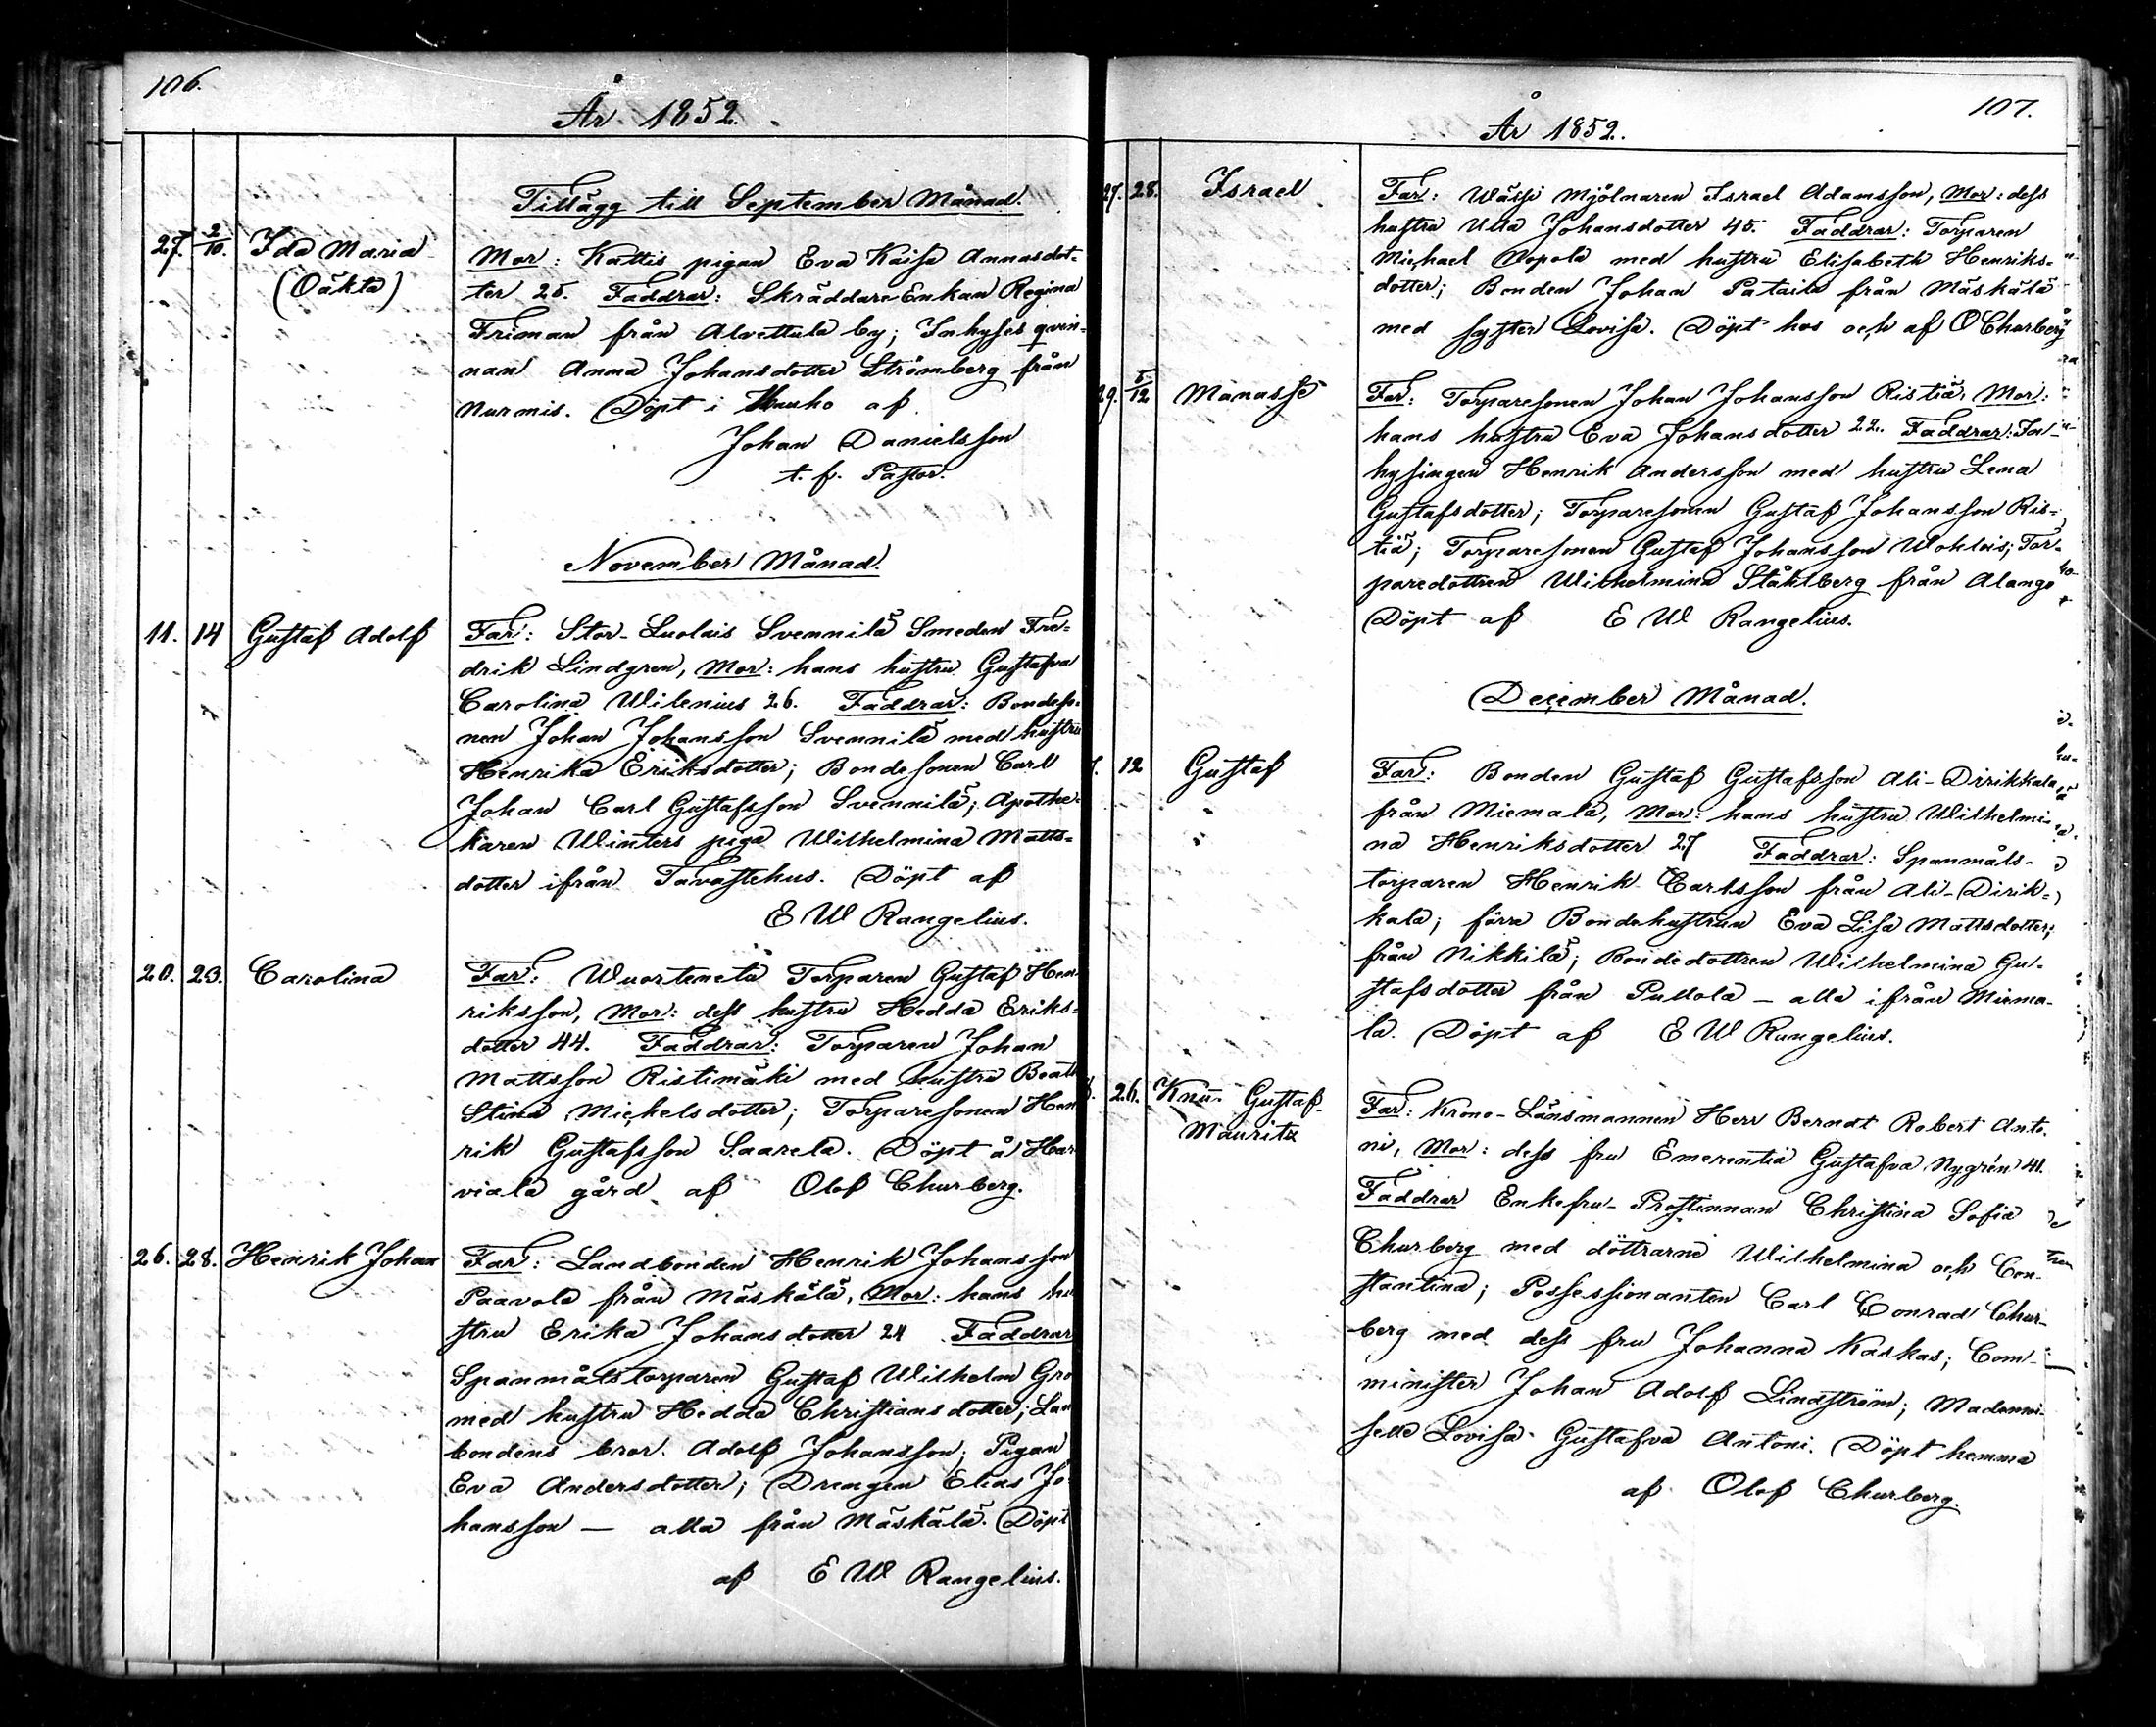 106.
År 1852.
Tillägg till September Månad.
27. 2/10. Ida Maria Mor: Kattis pigan Eva Kaisa Annasdot-
(Oäkta) ter 25. Faddrar: Skräddare Enkan Regina
Friman från Alvettula by; Inhyses qvin-
nan Anna Johansdotter Strömberg från
Nurmis. Döpt i Hauho af
Johan Danielsson
t. f. Pastor.
November Månad.
11. 14 Gustaf Adolf Far: Stor-Luolais Svennilä Smeden Fre-
drik Lindgren, Mor: hans hustru Gustafva
Carolina Wilenius 26. Faddrar: Bondeso-
nen Johan Johansson Svennilä med hustru
Henrika Eriksdotter; Bondesonen Carl
Johan Carl Gustafsson Svennilä; Apothe-
karen Winters piga Wilhelmina Matts-
dotter ifrån Tavastehus. Döpt af
E W Rangelius.
20. 23. Carolina Far: Wuorentetä Torparen Gustaf Hen-
riksson, Mor: dess hustru Hedda Eriks-
dotter 44. Faddrar: Torparen Johan
Mattsson Ristimäki med hustru Beat
Stina Michelsdotter; Torparesonen Hen
rik Gustafsson Saarela. Döpt å Har
viala gård af Olof Churberg.
26. 28. Henrik Johan Far: Landbonden Henrik Johansson
Paavola från Mäskälä, Mor: hans hu
stru Erika Johansdotter 24 Faddrar
Spanmålstorparen Gustaf Wilhelm Gro
med hustru Hedda Christiansdotter; Lan
bondens bror Adolf Johansson; Pigan
Eva Andersdotter; Drengen Elias Jo
hansson — alla från Mäskälä. Döpt
af E W Rangelius.
107.
År 1852.
27. 28. Israel Far: Wässi Mjölnaren Israel Adamsson, Mor: dess
hustru Ulla Johansdotter 45. Faddrar: Torparen
Michael Nopola med hustru Elisabeth Henriks-
dotter; Bonden Johan Pataila från Mäskälä
med syster Lovisa. Döpt hos och af O Churberg
29. 5/12 Manasse Far: Torparesonen Johan Johansson Ristiä, Mor:
hans hustru Eva Johansdotter 22. Faddrar: In-
hysingen Henrik Andersson med hustru Lena
Gustafsdotter; Torparesonen Gustaf Johansson Ris-
tiä; Torparesonen Gustaf Johansson Wohlois; Tor-
paredottren Wilhelmina Ståhlberg från Alange
Döpt af E W Rangelius.
December Månad.
12 Gustaf Far: Bonden Gustaf Gustafsson Ali-Dirikkala
från Miemala, Mor: hans hustru Wilhelmi-
na Henriksdotter 27 Faddrar: Spanmåls-
torparen Henrik Carlsson från Ali-Dirik-
kala; förra Bondehustrun Eva Lisa Mattsdotter;
från Nikkilä; Bondedottren Wilhelmina Gu-
stafsdotter från Pullola — alla ifrån Miema-
la. Döpt af E W Rangelius.
26. Knut Gustaf Far: Krono-Länsmannen Herr Berndt Robert Anto-
Mauritz ni, Mor: dess fru Emerentia Gustafva Nygrén 41.
Faddrar Enkefru-Prostinnan Christina Sofia
Churberg med döttrarne Wilhelmina och Con-
stantina; Possessionanten Carl Conrad Chur-
berg med dess fru Johanna Kaskas; Com-
minister Johan Adolf Lindström; Madamoi-
selle Lovisa Gustafva Antoni. Döpt hemma
af Olof Churberg.